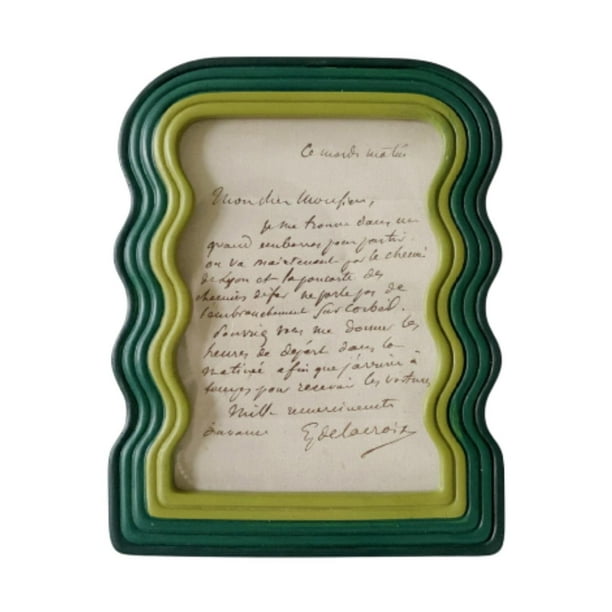 Ce mardi matin
Mon cher Monsieur,
Je me trouve dans un
grand embarras pour partir.
on va maintenant par le chemin
de Lyon et la pancarte des
chemins de fer ne parle pas de
l'embranchement sur Corbeil.
Pourriez vous me donner les
heures de départ dans la
matinée afin que j'arrive à
temps pour recevoir les voitures
Mille remerciements
d'avance EgDelacroix